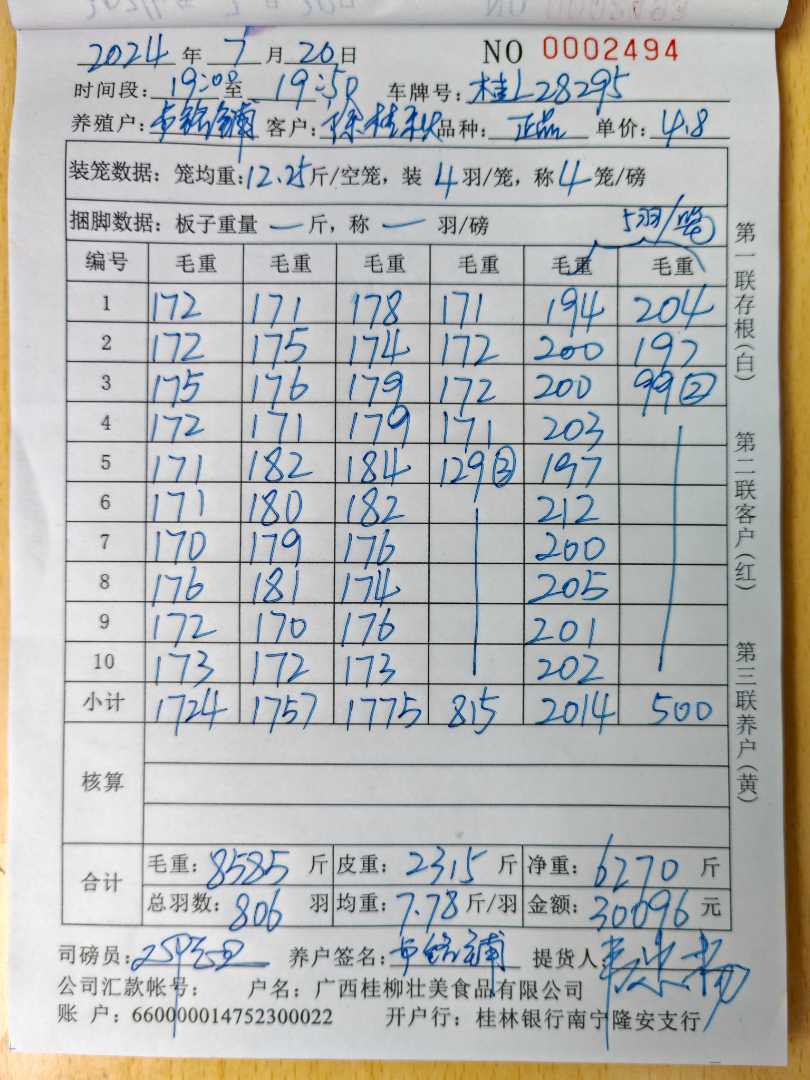 2024 年 7 月 20 日 NO 0002494
时间段: 19:00 至 19:50 车牌号: 桂L28295
养殖户: 客户: 徐桂秋 品种: 正品 单价: 4.8
装笼数据: 笼均重: 12.25 斤/空笼, 装 4 羽/笼, 称 4 笼/磅
捆脚数据: 板子重量 一 斤, 称 一 羽/磅 5羽/笼
编号 毛重 毛重 毛重 毛重 毛重 毛重
1 172 171 178 171 194 204
2 172 175 174 172 200 197
3 175 176 179 172 200 99②
4 172 171 179 171 203
5 171 182 184 129③ 197
6 171 180 182 212
7 170 179 176 200
8 176 181 174 205
9 172 170 176 201
10 173 172 173 202
小计 1724 1757 1775 815 2014 500
核算
合计 毛重: 8585 斤 皮重: 2315 斤 净重: 6270 斤
总羽数: 806 羽 均重: 7.78 斤/羽 金额: 30096 元
司磅员: 养户签名: 提货人:
公司汇款帐号: 户名: 广西桂柳壮美食品有限公司
账 户: 660000014752300022 开户行: 桂林银行南宁隆安支行
第一联存根(白) 第二联客户(红) 第三联养户(黄)